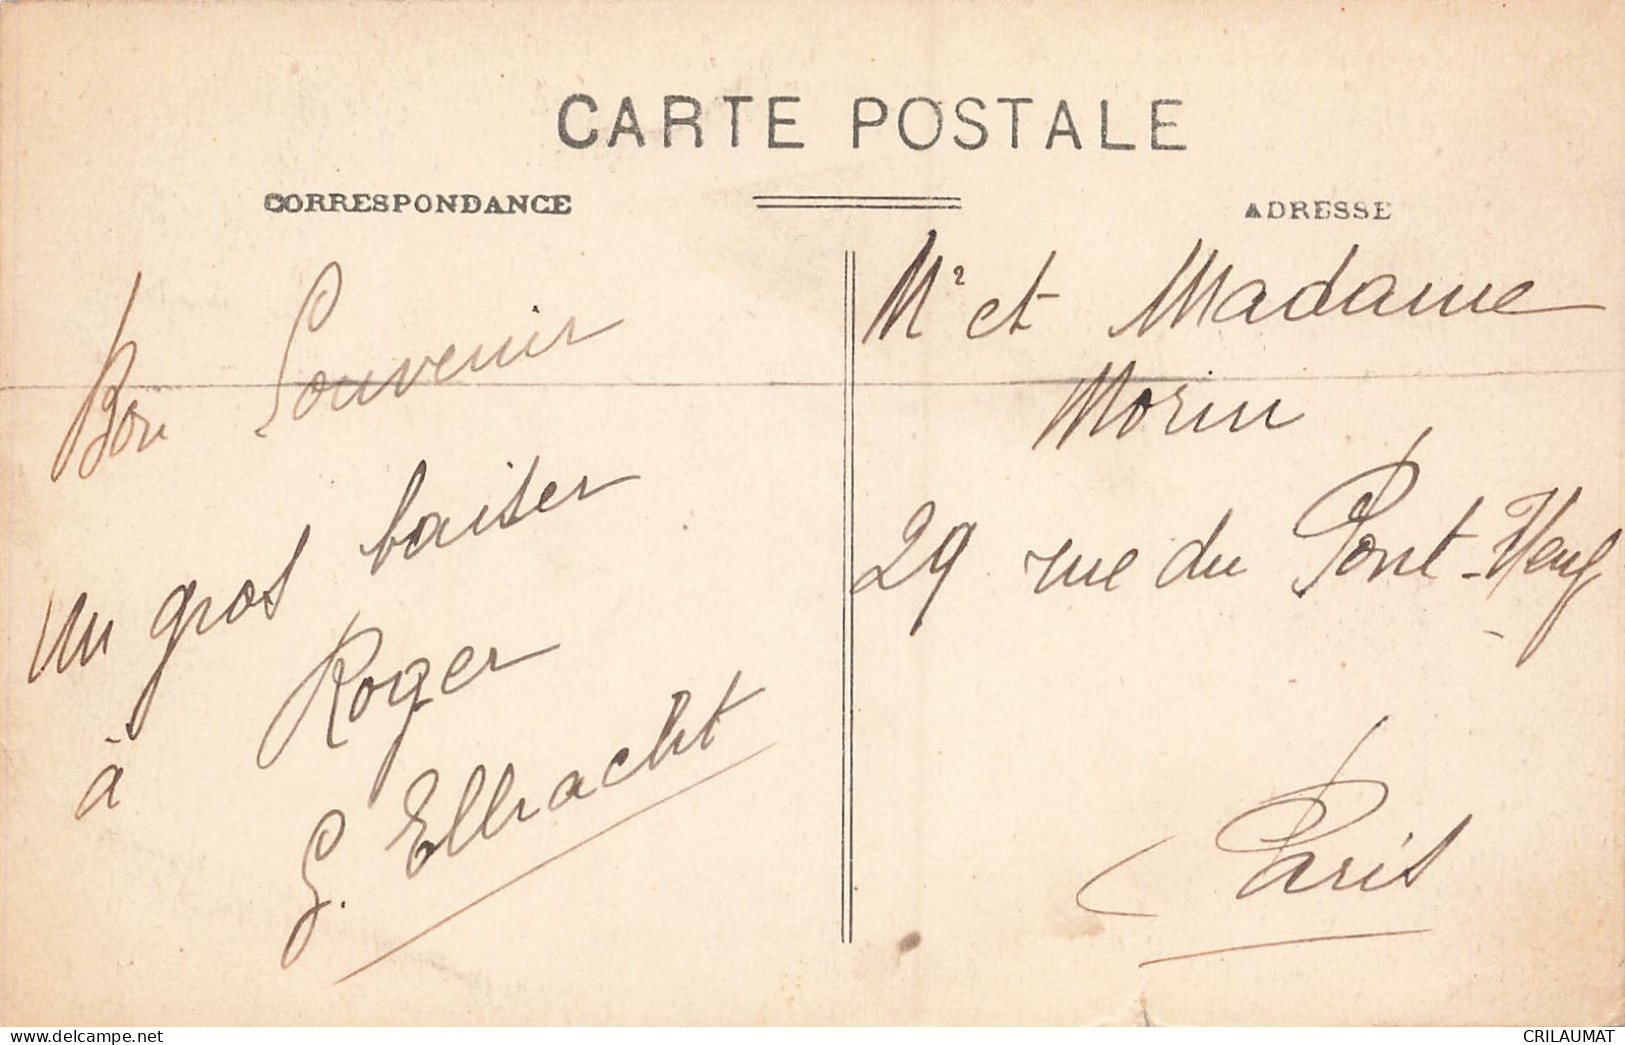 CARTE POSTALE
CORRESPONDANCE
ADRESSE
Bon Souvenir
un gros baiser
à Roger
Mr et Madame
Morin
29 rue du Pont-Neuf
Paris
https://www.delcampe.net
CRILAUMAT